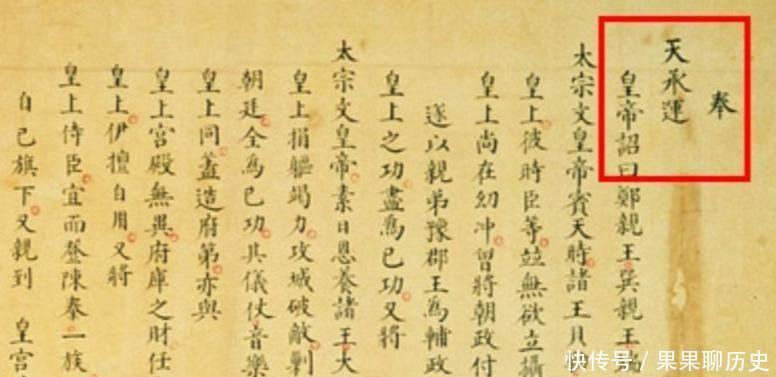 奉
天承運
皇帝詔曰鄭親王巽親王
太宗文皇帝賓天時諸王貝
皇上彼時臣等並無欲立攝
皇上尚在幼冲曾將朝政付
遂以親弟豫郡王爲輔政
皇上之功盡爲己功又將
太宗文皇帝素日恩養諸王大
皇上捐軀竭力攻城破敵剿
朝廷全爲己功其儀仗音樂
皇上同蓋造府第亦與
皇上宮殿無異府庫之財任
皇上伊擅自用又將
皇上侍臣宜而登陳奉一族
自己旗下又親到 皇宮
快传号 / 果果聊历史